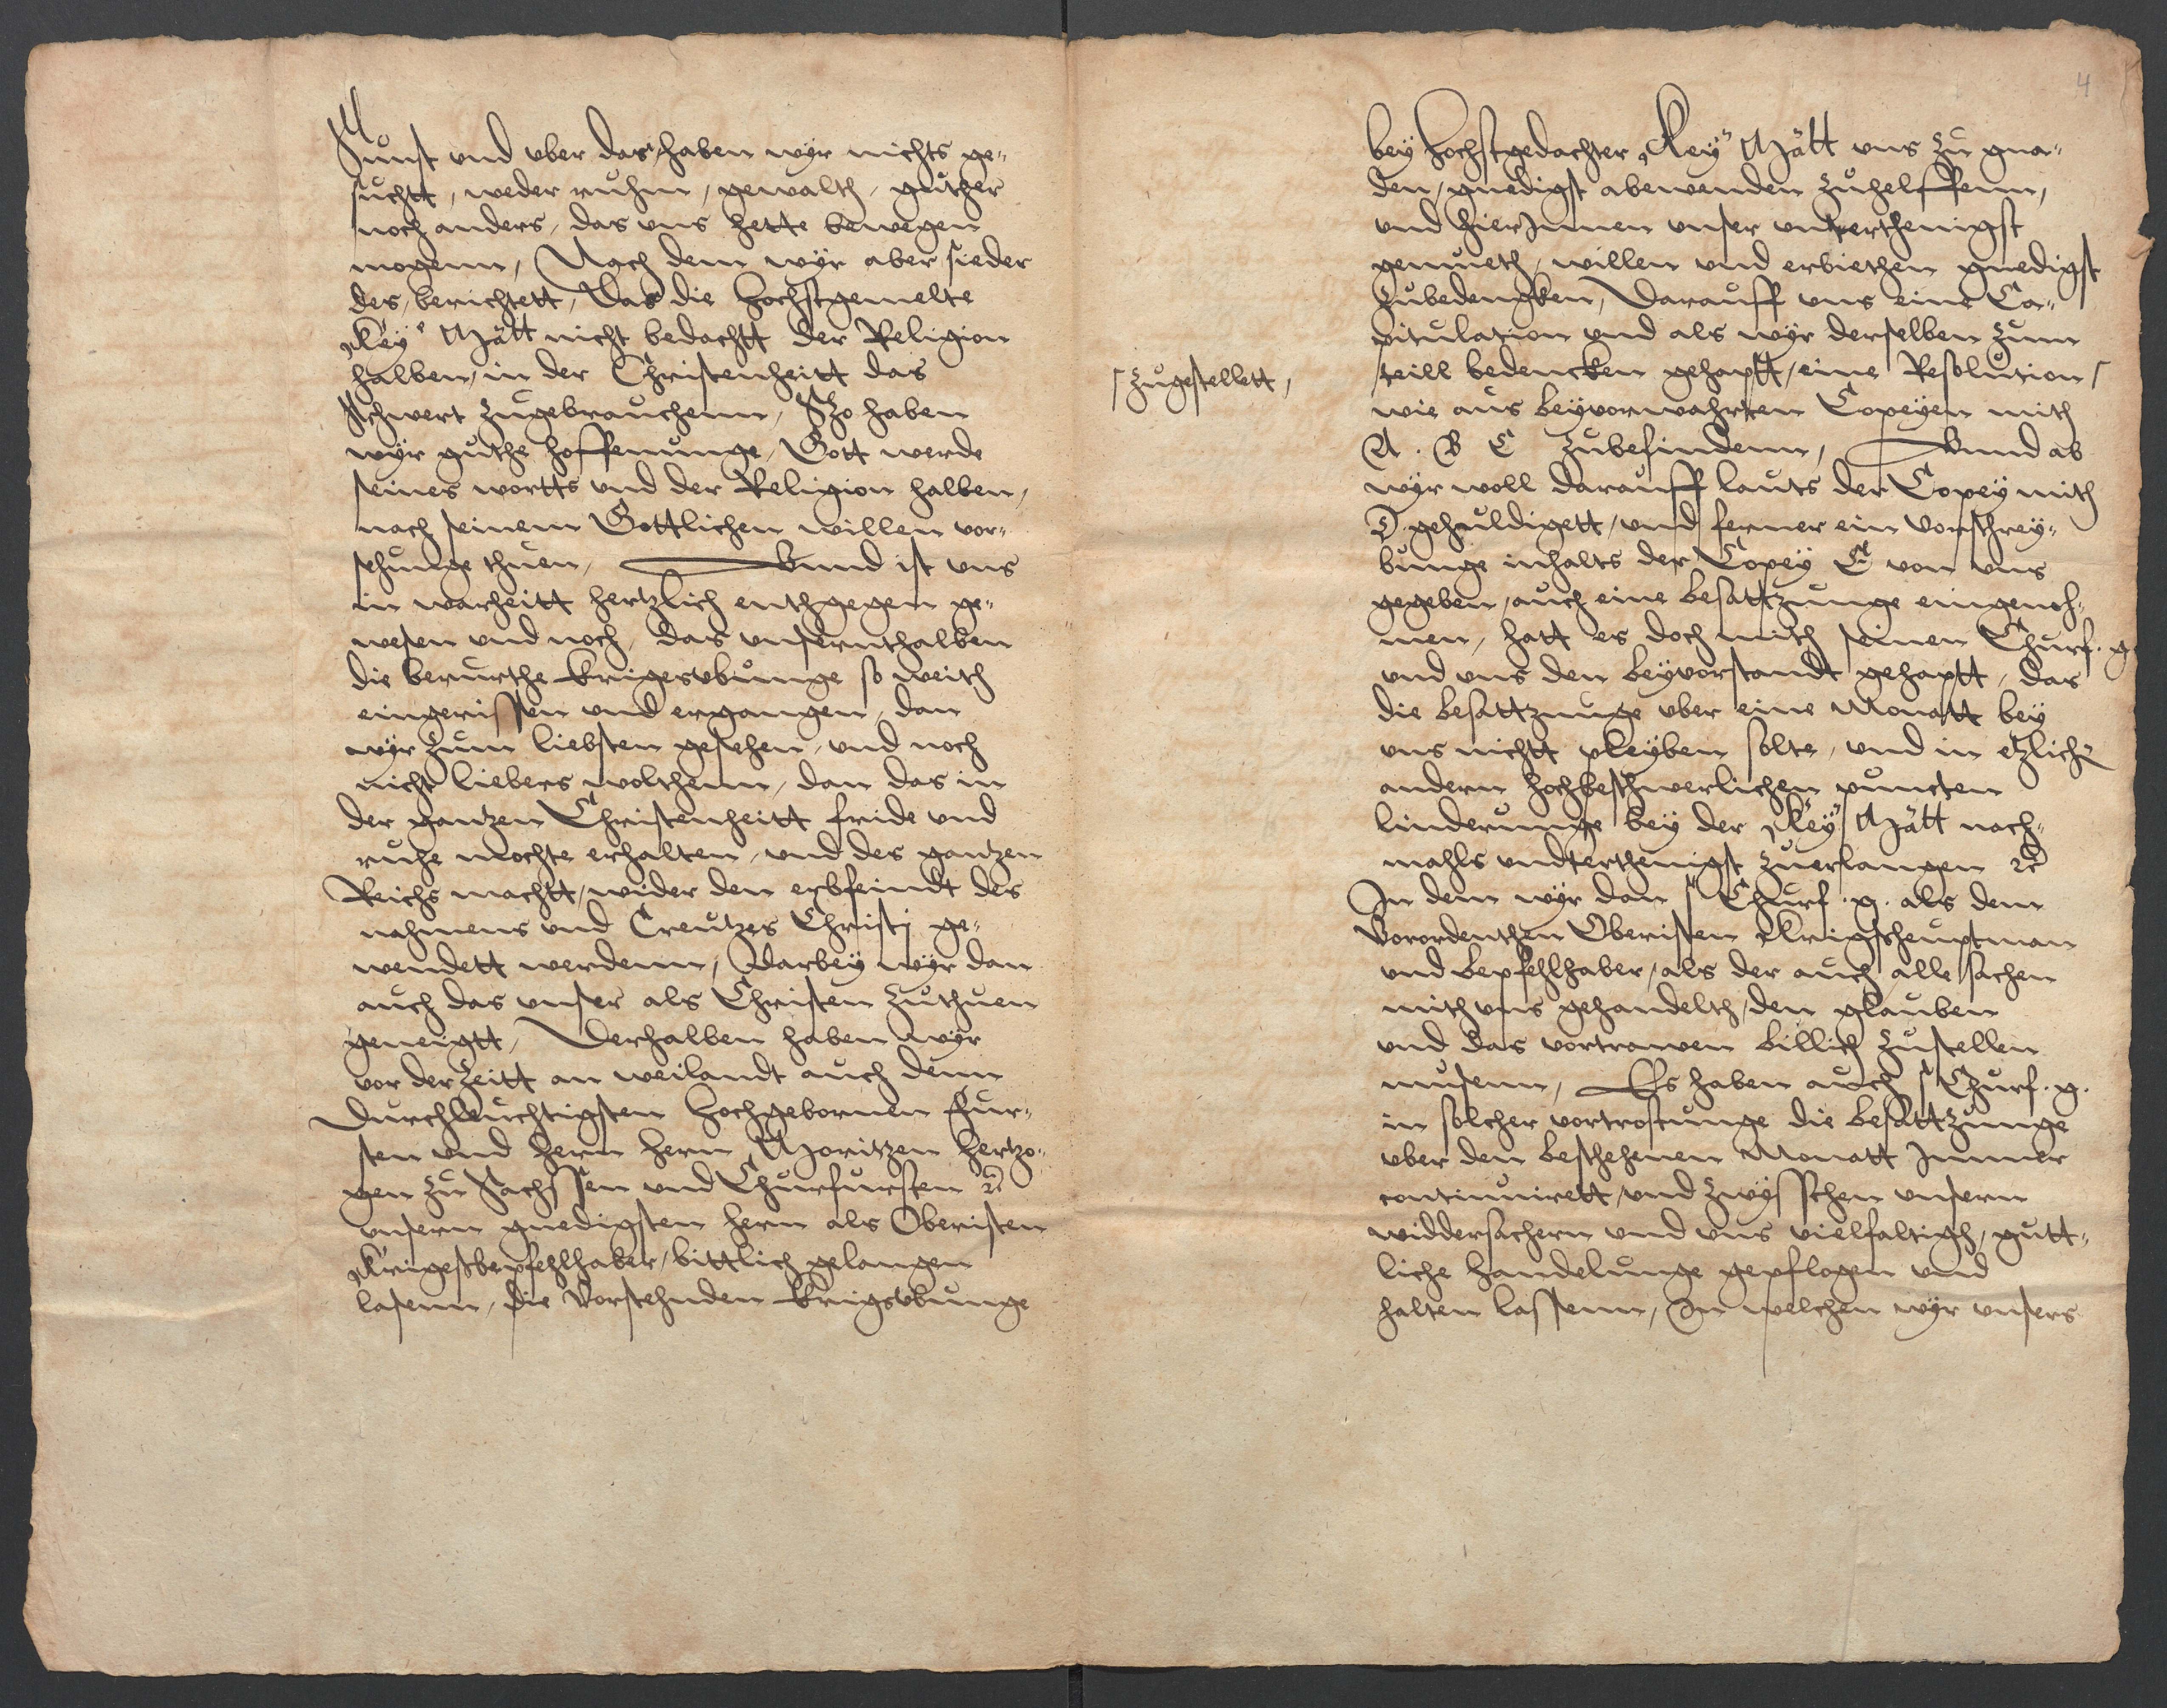 Sunst und uber das, haben wyr nichts ge-
sucht, weder ruhm, gewalth, guther
noch anders, das uns hette bewegen
mogenn, Nach dem wyr aber sieder
des, berichtett, Das die Hochstgemelte
Key: Matt nicht bedachtt der Religion
halben, in der Christenheitt das
schwert zugebrauchenn, Szo haben
wyr guthe hoffenunge, Gott werde
seines wortts und der Religion halben,
nach seinem Gottlichen willen vor-
sehunge thuen, Unnd ist uns
in warheitt hertzlich enthgegen ge-
wesen und noch, das unsernthalben
die berurthe kriegesubunge so weith
eingerissen und ergangen, dan
wyr zum liebsten gesehen, und noch
nicht liebers wolthenn, dan das in
der gantzen Christenheitt fride und
ruhe mochte erhalten, und des gantzen
Reichs machtt, wider den erbfeindt des
nahmens und Creutzes Christj ge-
wendett werdenn, Darbey wyr dan
auch das unser als Christen zuthuen
geneigtt, Derhalben haben wyr
vor der zeitt an weilandt auch denn
Durchleuchtigsten hochgebornen Fur-
sten und hern hern Moritzen Hertzo-
gen zu Sachssen und Churfursten ec
unsern gnedigsten hern als Obersten
Krigesbepfehlhaber, bittlich gelangen
lasenn, die Vorstehnden krigsubunge
4
bey Hochstgedachter Key: Matt uns zu gna-
den, gnedigst abewenden zuhelffenn,
und hierinnen unser unterthenigst
gemueth, willen und erbiethen gnedigst
zubedengken, Darauff uns eine Ca-
pitulation und als wyr derselben zum
teill bedencken gehaptt, eine Resolution
zugestellett,
wie aus beyvorwahrten Copeyen mith
A. B C zubefindenn, Unnd ab
wyr woll darauff lauts der Copey mith
D. gehuldigett, und ferner ein vorschrey-
bunge inhalts der Copey E von uns
gegeben, auch eine besattzunge eingenoh-
men, hatt es doch mith seinen Churf. g.
und uns den beyvorstandt gehaptt, das
die besattzunge uber eine Monatt bey
uns nichtt pleyben solte, und in etzliche
andern hochbeschwerlichen puncten
linderunge bey der Key: Matt noch-
mahls undterthenigst zuerlangen ec
In dem wyr dan s Churf. g. als dem
Vorordenthen Obersten Krigsheuptman
und bepfehlhaber, als der auch alle sachen
mith uns gehandelth, den glauben
und das vortrawen billich zustellen
musenn, Es haben auch s Churf. g.
in solcher vortrostunge die besattzunge
uber den beschehenen Monatt immer
continuirett, und zwysschen unsern
widdersachern und uns vielfaltigh, gutt-
liche handelunge gepflogen und
halten lassenn, In welchen wyr unsers